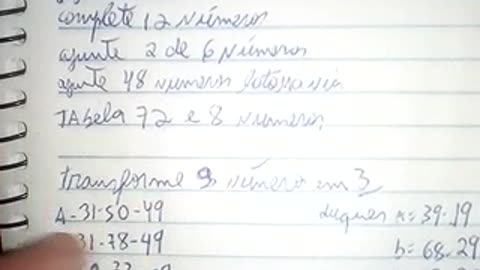 complete 12 números
ajunte 2 de 6 números
ajunte 48 números lotomania
TAbela 72 e 8 números
transforme 9 número em 3
A-31-50-49 duques A=39-19
31-78-49 b=68-29